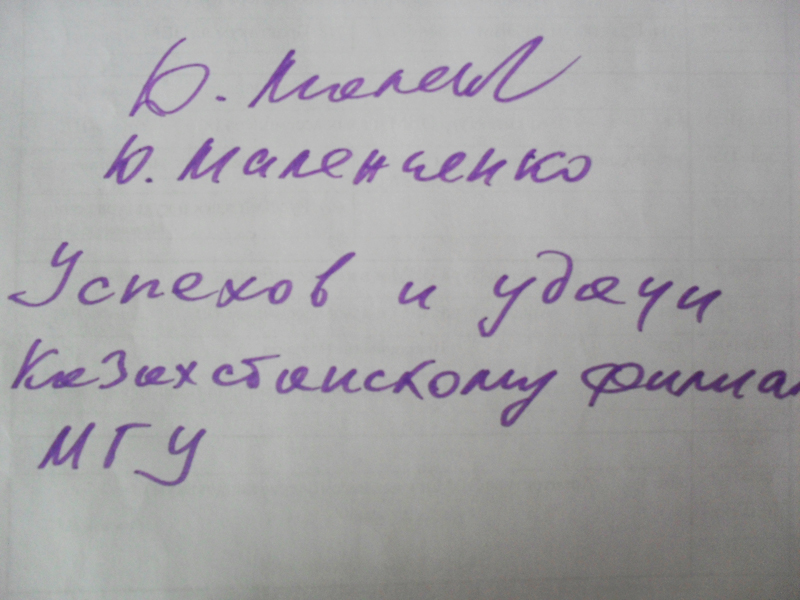 Ю. Мален
Ю. Маленченко
Успехов и удачи
Казахстанскому филиал
МГУ